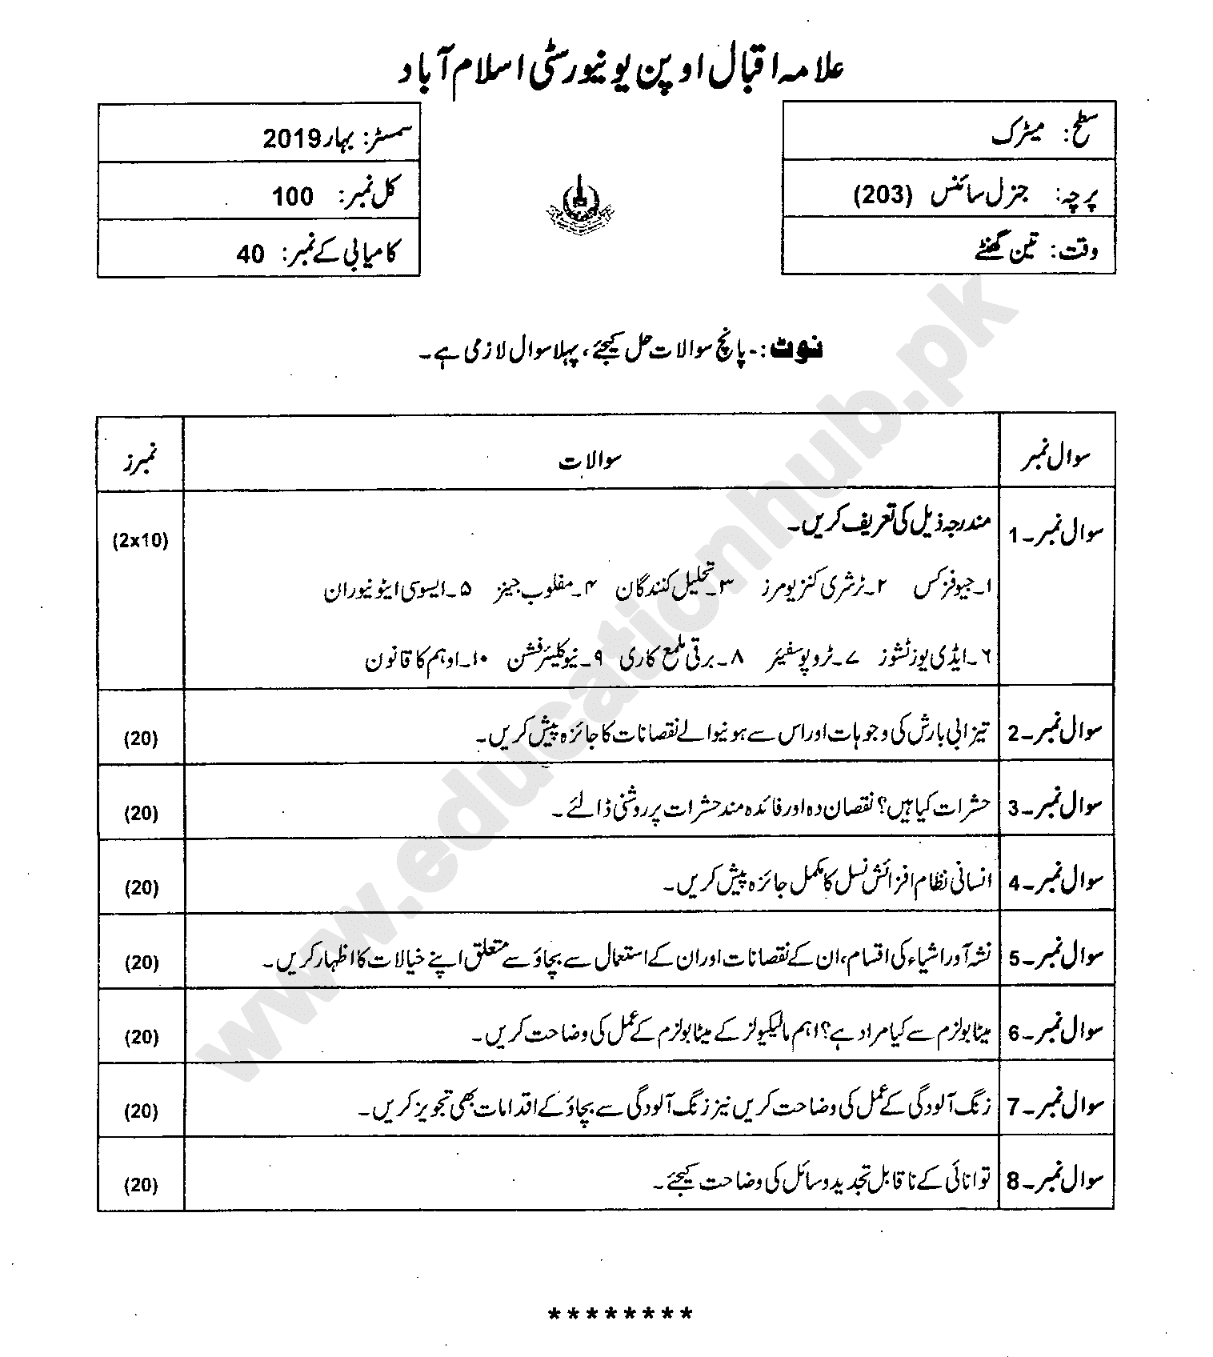 علامہ اقبال اوپن یونیورسٹی اسلام آباد
سطح: میٹرک
پرچہ: جنرل سائنس (203)
وقت: تین گھنٹے
سمسٹر: بہار 2019
کل نمبر: 100
کامیابی کے نمبر: 40
نوٹ:۔ پانچ سوالات حل کیجئے، پہلا سوال لازمی ہے۔
سوال نمبر سوالات نمبرز
سوال نمبر۔1 مندرجہ ذیل کی تعریف کریں۔ (2x10)
۱۔جیوفزکس ۲۔ٹرشری کنزیومرز ۳۔تحلیل کنندگان ۴۔مغلوب جینز ۵۔ایسوسی ایٹو نیوران
۶۔ایڈی پوز ٹشوز ۷۔ٹروپوسفیئر ۸۔برقی ملمع کاری ۹۔نیوکلیئر فشن ۱۰۔اوہم کا قانون
سوال نمبر۔2 تیزابی بارش کی وجوہات اور اس سے ہونیوالے نقصانات کا جائزہ پیش کریں۔ (20)
سوال نمبر۔3 حشرات کیا ہیں؟ نقصان دہ اور فائدہ مند حشرات پر روشنی ڈالئے۔ (20)
سوال نمبر۔4 انسانی نظام افزائش نسل کا مکمل جائزہ پیش کریں۔ (20)
سوال نمبر۔5 نشہ آور اشیاء کی اقسام، ان کے نقصانات اور ان کے استعمال سے بچاؤ سے متعلق اپنے خیالات کا اظہار کریں۔ (20)
سوال نمبر۔6 میٹابولزم سے کیا مراد ہے؟ اہم مالیکیولز کے میٹابولزم کے عمل کی وضاحت کریں۔ (20)
سوال نمبر۔7 زنگ آلودگی کے عمل کی وضاحت کریں نیز زنگ آلودگی سے بچاؤ کے اقدامات بھی تجویز کریں۔ (20)
سوال نمبر۔8 توانائی کے ناقابل تجدید وسائل کی وضاحت کیجئے۔ (20)
********
www.educationhub.pk